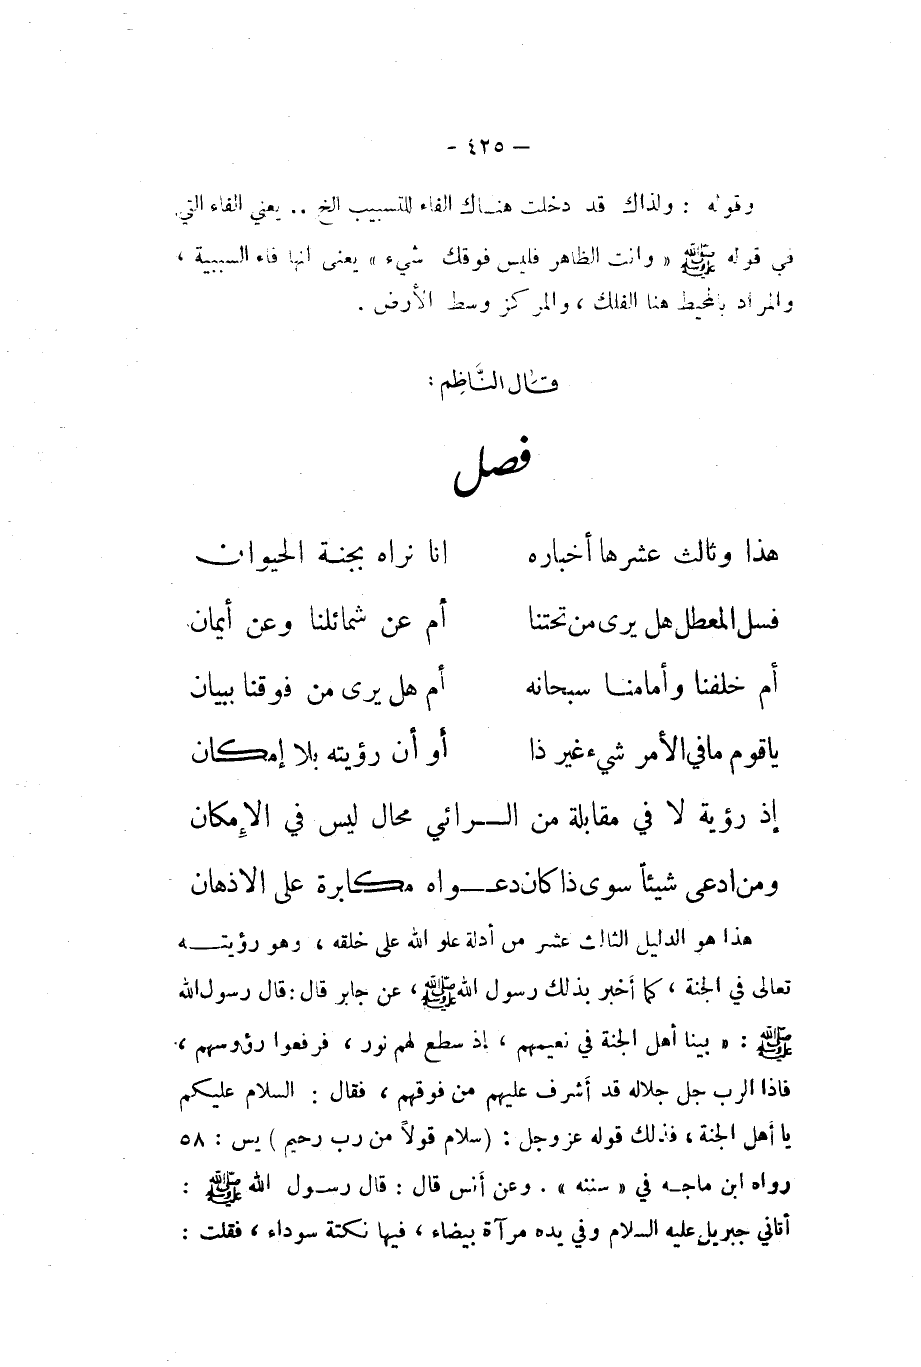 — ٤٢٥ -
وقوله : ولذاك قد دخلت هنـاك الفاء للتسبيب الخ .. يعني الفاء التي
في قوله ﷺ « وانت الظاهر فليس فوقك شيء » يعنى انها فاء السببية ،
والمراد بالمحيط هنا الفلك ، والمركز وسط الأرض .
قَـال النَّاظِم :
فصل
هذا وثالث عشرها أخباره انا نراه بجنـة الحيوان
فسل المعطل هل يرى من تحتنا أم عن شمائلنا وعن أيمان
أم خلفنا وأمامنـا سبحانه أم هل يرى من فوقنا ببيان
ياقوم مافي الأمر شيء غير ذا أو أن رؤيته بلا إمكان
إذ رؤية لا في مقابلة من الـــرائي محال ليس في الإمكان
ومن ادعى شيئاً سوى ذا كان دعـــواه مكابرة على الاذهان
هذا هو الدليل الثالث عشر من أدلة علو الله على خلقه ، وهو رؤيتـــه
تعالى في الجنة ، كما أخبر بذلك رسول الله ﷺ ، عن جابر قال : قال رسول الله
ﷺ : « بينا أهل الجنة في نعيمهم ، إذ سطع لهم نور ، فرفعوا رؤوسهم ،
فاذا الرب جل جلاله قد أشرف عليهم من فوقهم ، فقال : السلام عليكم
يا أهل الجنة ، فذلك قوله عز وجل : (سلام قولاً من رب رحيم ) يس : ٥٨
رواه ابن ماجـه في « سننه » . وعن أنس قال : قال رسـول الله ﷺ :
أتاني جبريل عليه السلام وفي يده مرآة بيضاء ، فيها نكتة سوداء ، فقلت :